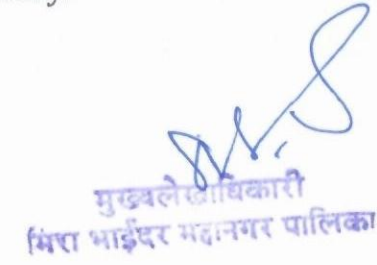 मुख्यलेखाधिकारी
मिरा भाईंदर महानगर पालिका